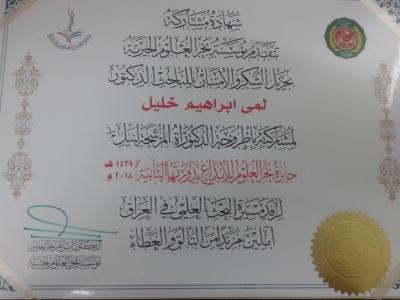 شهادة مشاركة
تتقدم مؤسسة بحر العلوم الخيرية
بجزيل الشكر والامتنان للباحث الدكتور
لمى ابراهيم خليل
لمشاركته بأطروحة الدكتوراه المرشحة لنيل
جائزة بحر العلوم للإبداع بدورتها الثانية ١٤٣٩ هـ
٢٠١٨ م
لرفد مسيرة البحث العلمي في العراق
آملين مزيداً من التألق والعطاء
مؤسسة بحر العلوم الخيرية